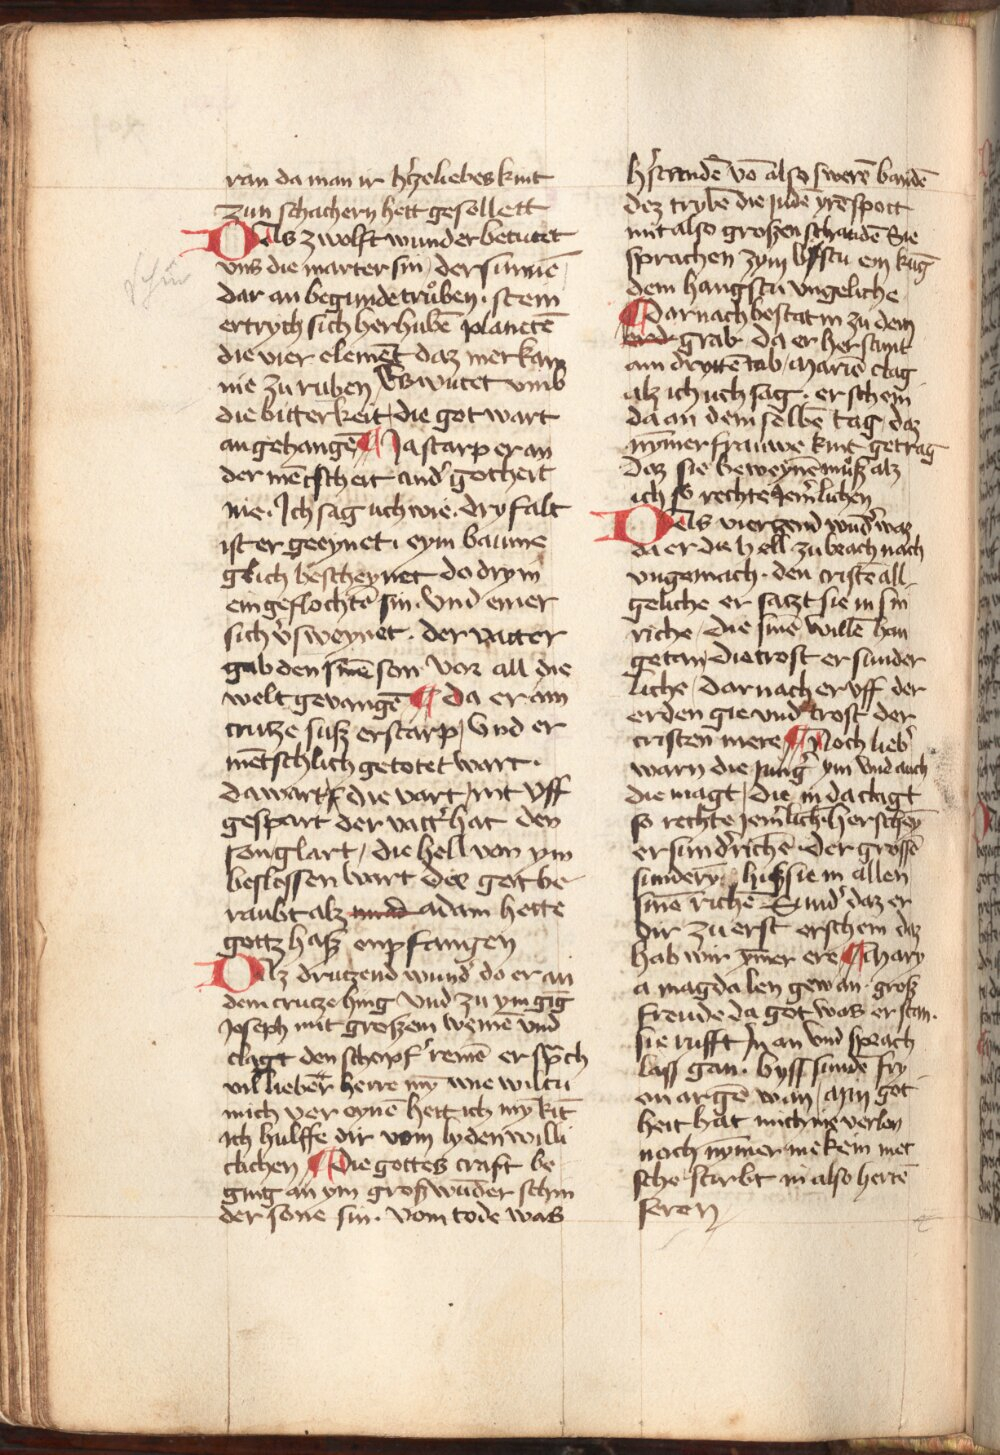 ran da man ir hˀzeliebes kint
zun schachern hett gesellett
Das zwolft wunder betutet
vns die marter sin / der sunnē
dar an begunde trůben . stein
ertrych sich herhubē planetē
die vier element daz merkam
nie zu ruben Es wutet vmb
die bitterkeit / die got wart
an gehangē ¶ Ja starp er an
der mētscheit and' gotheit
nie . Ich sag uch wie . dryfalt
ist er geeynet . eym baume
glich bescheynet do dry in
ein geflochtē sin . Vnd einer
sich v'sweynet . der vatter
gab den sinē son vor all die
welt gevangē ¶ Da er am
crutze suß erstarp / Vnd er
mētschlich getotet wart .
da wart die vart / mit vff
gespart der vatt' hat den
son glart / die hell von ym
beslossen wart die geit be
raubt alz adam hette
gottz haß enpfangen
Daz drutzend wund' do er an
dem crutze hing Vnd zu ym gīg
Joseph mit großem weinē vnd
clagt den schopf' reinē er sprach
vil lieber herre mȳ wie wiltu
mich ver eynē hett ich mȳ kīt
ich hulffe dir vom lyden willi
clichen ¶ Die gottes craft be
ging an ym groß wūder schin
der sone sin . vom tode was
h'standē vō also swerē bandē
dez trybē die judē yrē spott
mit also großen schandē Sie
sprachen zym bystu ein kūg
dem hangstu vngeliche
¶ Darnach bestat m zu dem
grab da er herstunt
am drytē tab / Mariē clag
alz ich uch sag . er schein
da an dem selbē tag / daz
nȳmer frauwe kint getrag
daz sie beweynē můß alz
ich so rechte jem'lichen
Das viertzend wūd' waz
da er die hell zu brach nach
vngemach . den cristē all
geliche er satzt sie in sin
riche / die sinē willē han
getan / die trost er sunder
liche / dar nach er vff der
erden gie vnd trost der
cristen mere ¶ Noch lieb'
warn die jung' ym vnd auch
die magt / die in da clagt
so rechte jem'lich . herscheȳ
er sund'richē . der grossē
sundery . hieß sie in allen
sinē richē Sund' daz er
dir zu erst erschein daz
hab wir ȳmer ere ¶ Mary
a magdalen gewan . groß
freude da got was erstan .
sie rufft jn an vnd sprach
lass gan . byss sunde fry
on argē wan / Min got
heit hat mich nie verlon
noch nȳmer me kein met
sche starbt in also hertē
seren